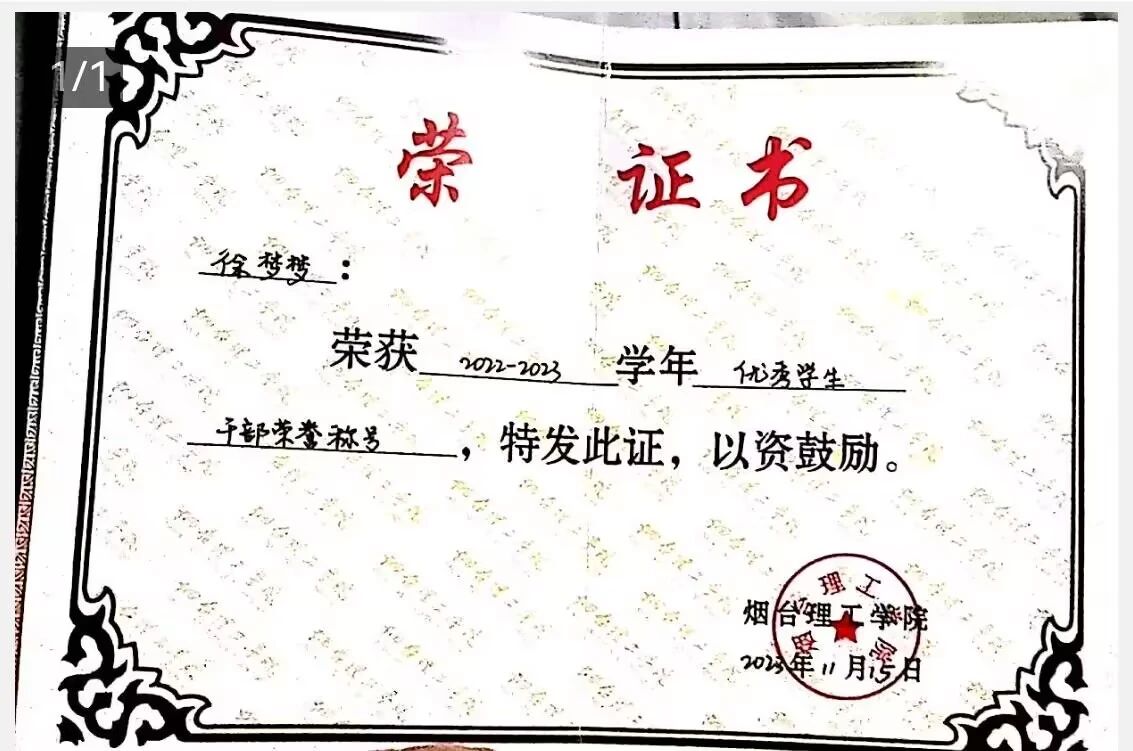 1/1
荣 证书
徐梦梦：
荣获 2022-2023 学年 优秀学生
干部荣誉称号，特发此证，以资鼓励。
烟台理工学院
2023年11月15日